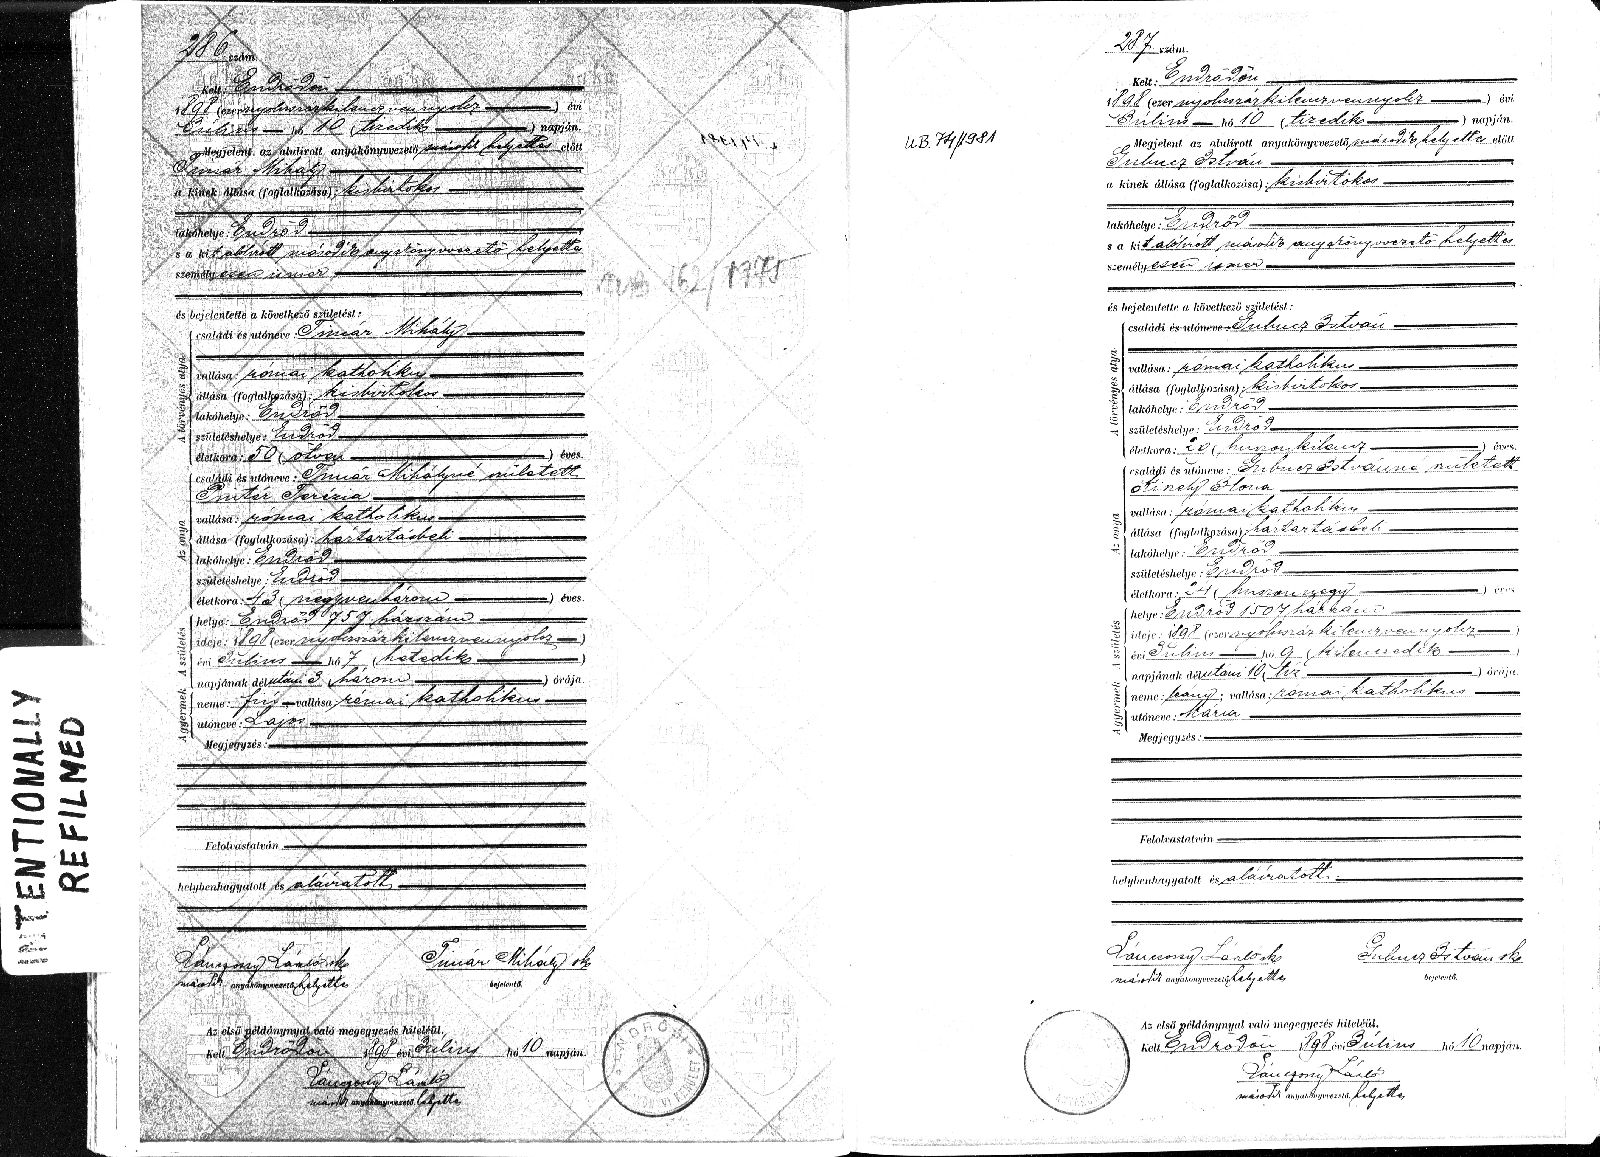 286 szám.
Kelt: Endrődön
1898 (ezer nyolcszázkilenczvennyolcz) évi
Július hó 10 (tizedik) napján.
Megjelent az alulírott anyakönyvvezető második helyettes előtt
Timár Mihály
a kinek állása (foglalkozása): kisbirtokos
lakóhelye: Endrőd
s a kit alólírott, második anyakönyvvezető helyettes
személyesen ismer
és bejelentette a következő születést:
A törvényes atya
családi és utóneve: Timár Mihály
vallása: római katholikus
állása (foglalkozása): kisbirtokos
lakóhelye: Endrőd
születéshelye: Endrőd
életkora: 50 (ötven) éves.
Az anya
családi és utóneve: Timár Mihályné született
Pintér Terézia
vallása: római katholikus
állása (foglalkozása): háztartásbeli
lakóhelye: Endrőd
születéshelye: Endrőd
életkora: 43 (negyvenhárom) éves.
A születés
helye: Endrőd 757 házszám
ideje: 1898 (ezer nyolcszázkilenczvennyolcz)
évi Július hó 7 (hetedik)
napjának délutáni 3 (három) órája.
A gyermek
neme: fiú vallása: római katholikus
utóneve: Lajos
Megjegyzés:
Felolvastatván
helybenhagyatott és aláíratott
László sk Timár Mihály sk
második anyakönyvvezető helyettes bejelentő.
Az első példánynyal való megegyezés hiteléül.
Kelt Endrődön 1898 évi Július hó 10 napján.
László
második anyakönyvvezető helyettes
162/1975
287 szám.
Kelt: Endrődön
1898 (ezer nyolcszázkilenczvennyolcz) évi
Július hó 10 (tizedik) napján.
Megjelent az alulírott anyakönyvvezető, második helyettes előtt
Gubucz István
a kinek állása (foglalkozása): kisbirtokos
lakóhelye: Endrőd
s a kit alólírott, második anyakönyvvezető helyettes
személyesen ismer
és bejelentette a következő születést:
A törvényes atya
családi és utóneve: Gubucz István
vallása: római katholikus
állása (foglalkozása): kisbirtokos
lakóhelye: Endrőd
születéshelye: Endrőd
életkora: 29 (huszonkilencz) éves.
Az anya
családi és utóneve: Gubucz Istvánné született
Ilona
vallása: római katholikus
állása (foglalkozása): háztartásbeli
lakóhelye: Endrőd
születéshelye: Endrőd
életkora: 24 (huszonnégy) éves
A születés
helye: Endrőd 1507 házszám
ideje: 1898 (ezer nyolcszázkilenczvennyolcz)
évi Július hó 9 (kilenczedik)
napjának délutáni 10 (tíz) órája.
A gyermek
neme: leány; vallása: római katholikus
utóneve: Mária
Megjegyzés:
Felolvastatván
helybenhagyatott és aláíratott.
László sk Gubucz István sk
második anyakönyvvezető helyettes bejelentő.
Az első példánynyal való megegyezés hiteléül.
Kelt Endrődön 1898 évi Július hó 10 napján.
László
második anyakönyvvezető. helyettes
U.B. 74/1981
INTENTIONALLY
REFILMED